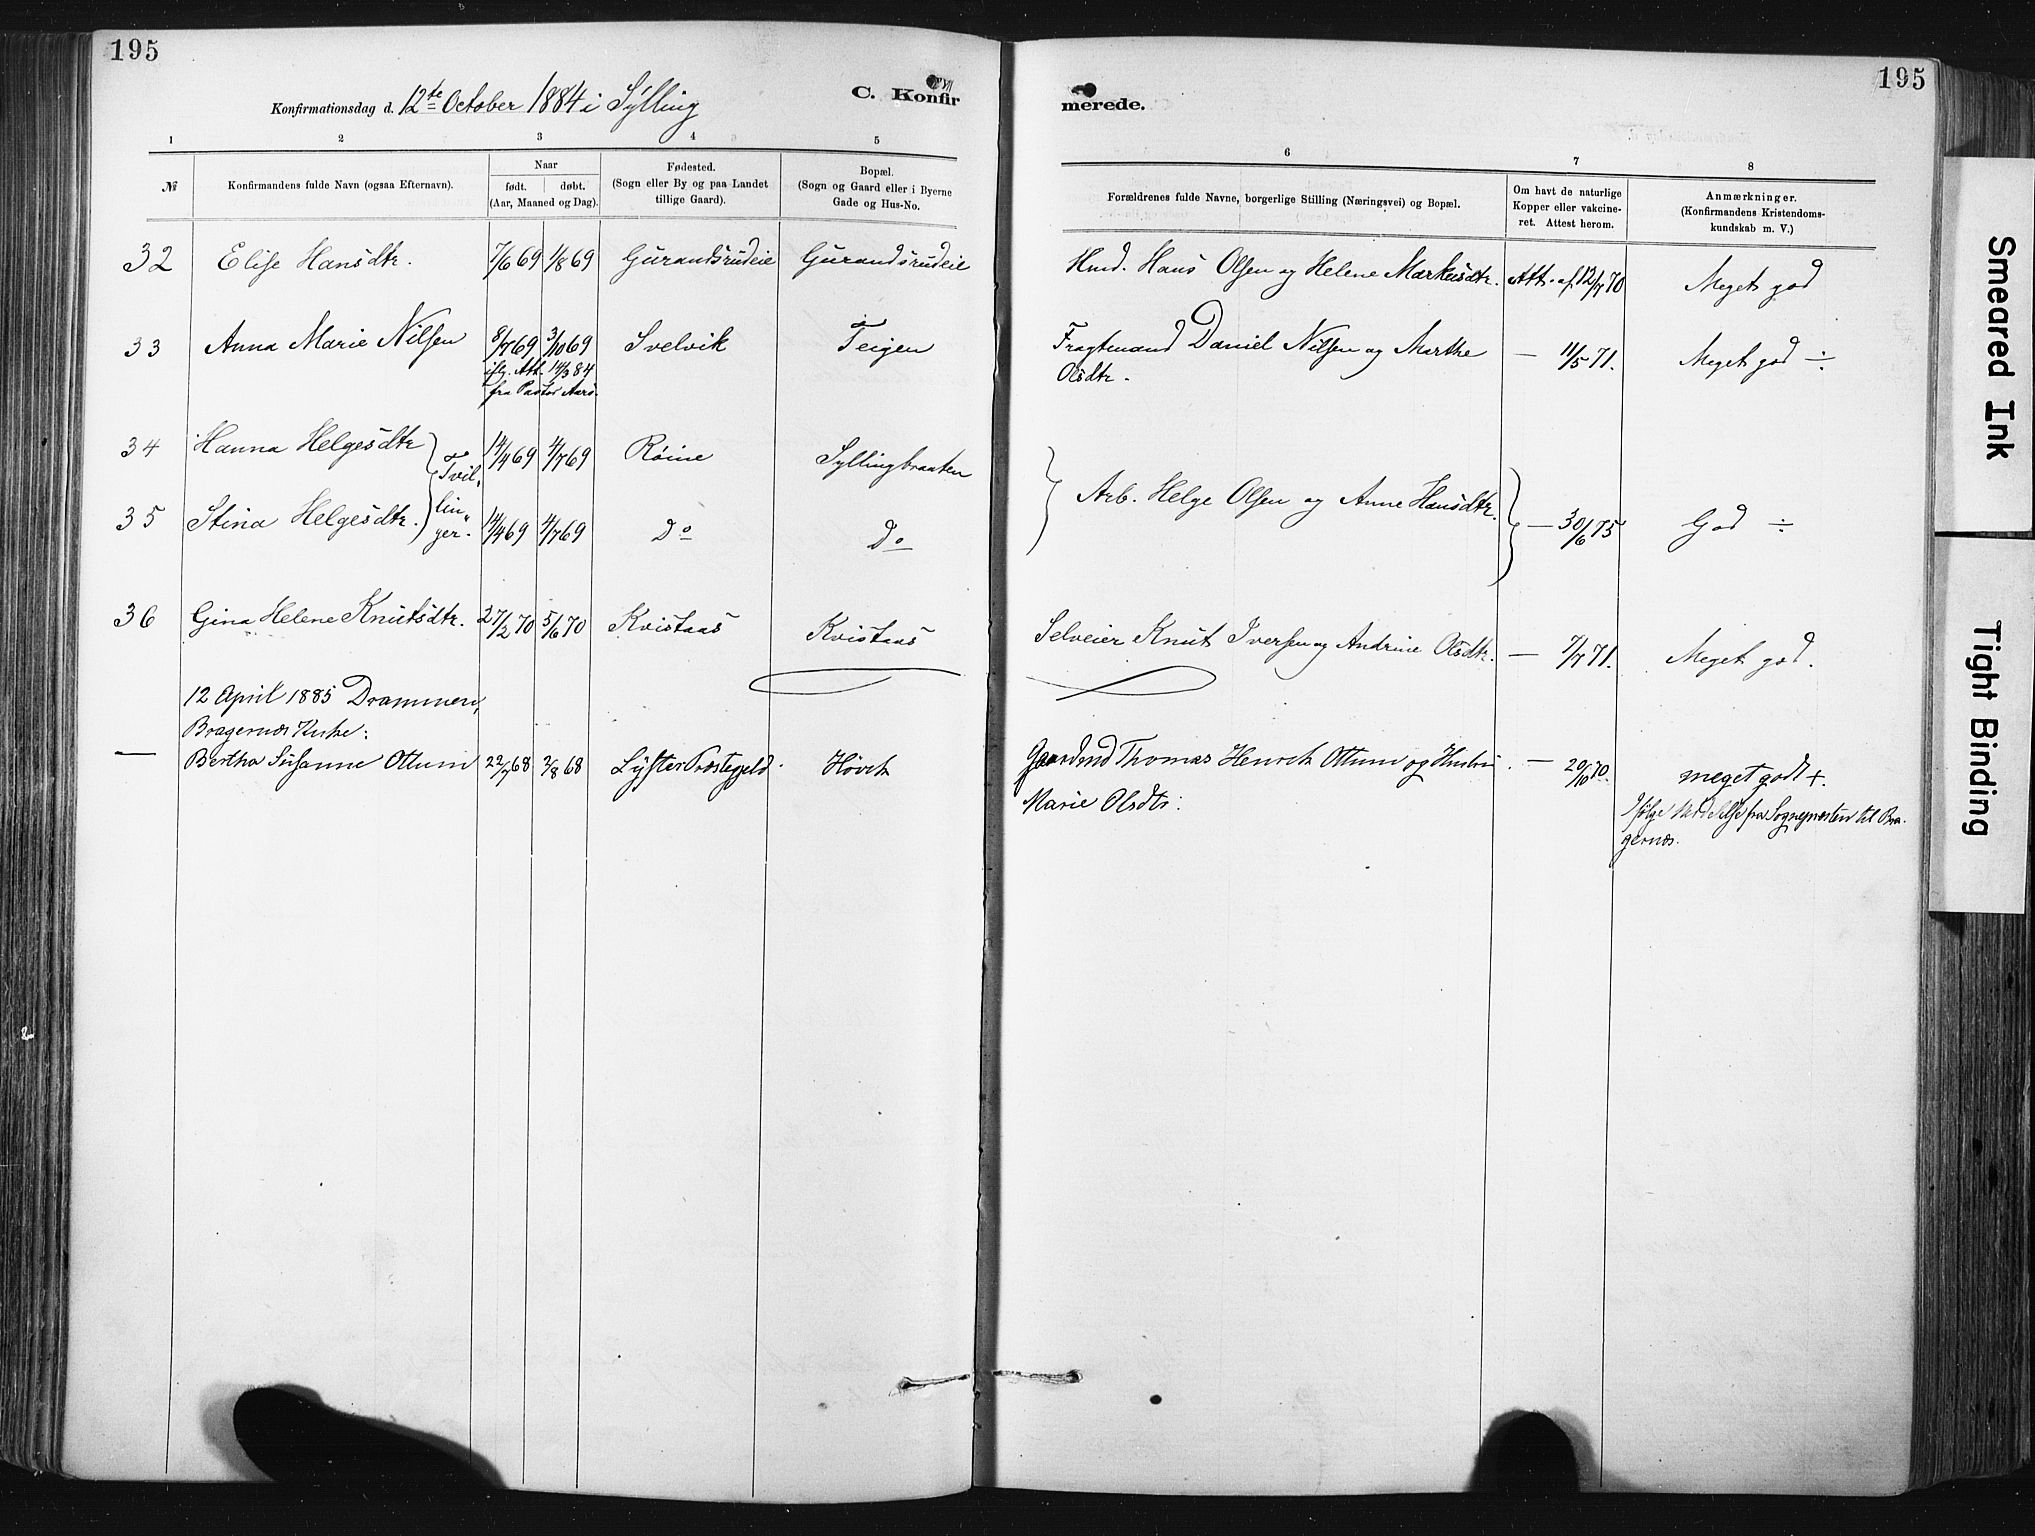 195
195
Konfirmationsdag d. 12te October 1884 i Sylling
C. Konfir
merede.
1 2 3 4 5 6 7 8
№
Konfirmandens fulde Navn (ogsaa Efternavn).
Naar
født. døbt.
(Aar, Maaned og Dag).
Fødested.
(Sogn eller By og paa Landet
tillige Gaard).
Bopæl.
(Sogn og Gaard eller i Byerne
Gade og Hus-No.
Forældrenes fulde Navne, borgerlige Stilling (Næringsvei) og Bopæl.
Om havt de naturlige
Kopper eller vakcine-
ret. Attest herom.
Anmærkninger.
(Konfirmandens Kristendoms-
kundskab m. V.)
32 Elise Hansdtr. 7/6 69 1/8 69 Gurandsrudeie Gurandsrudeie Hmd. Hans Olsen og Helene Markusdtr. Att. af 12/7 70 Meget god
33 Anna Marie Nilsen 8/7 69 3/10 69 Svelvik Teigen Fragtmand Daniel Nilsen og Marthe — 11/5 71. Meget god ÷
Olsdtr.
ifg. Att. 14/3 84
fra Pastor Aars.
34 Hanna Helgesdtr 14/4 69 4/7 69 Røine Syllingbraaten
Tvil-
lin-
ger.
Arb. Helge Olsen og Anne Hansdtr. — 30/6 75 God ÷
35 Stina Helgesdtr. 14/4 69 4/7 69 Do Do
36 Gina Helene Knutsdtr. 27/2 70 5/6 70 Kvistaas Kvistaas Selveier Knut Iversen og Andrine Olsdtr. — 7/7 71. Meget god.
12 April 1885 Drammen,
Bragernæs Kirke:
— Bertha Susanne Ottum 22/7 68 2/8 68 Lyster Præstegjeld. Høvik Gaardmd Thomas Henrik Ottum og Hustru — 20/10 70. meget godt +.
Marie Olsdtr.
Ifølge Meddelelse fra Sognepræsten til Bra-
gernæs.
Smeared Ink
Tight Binding